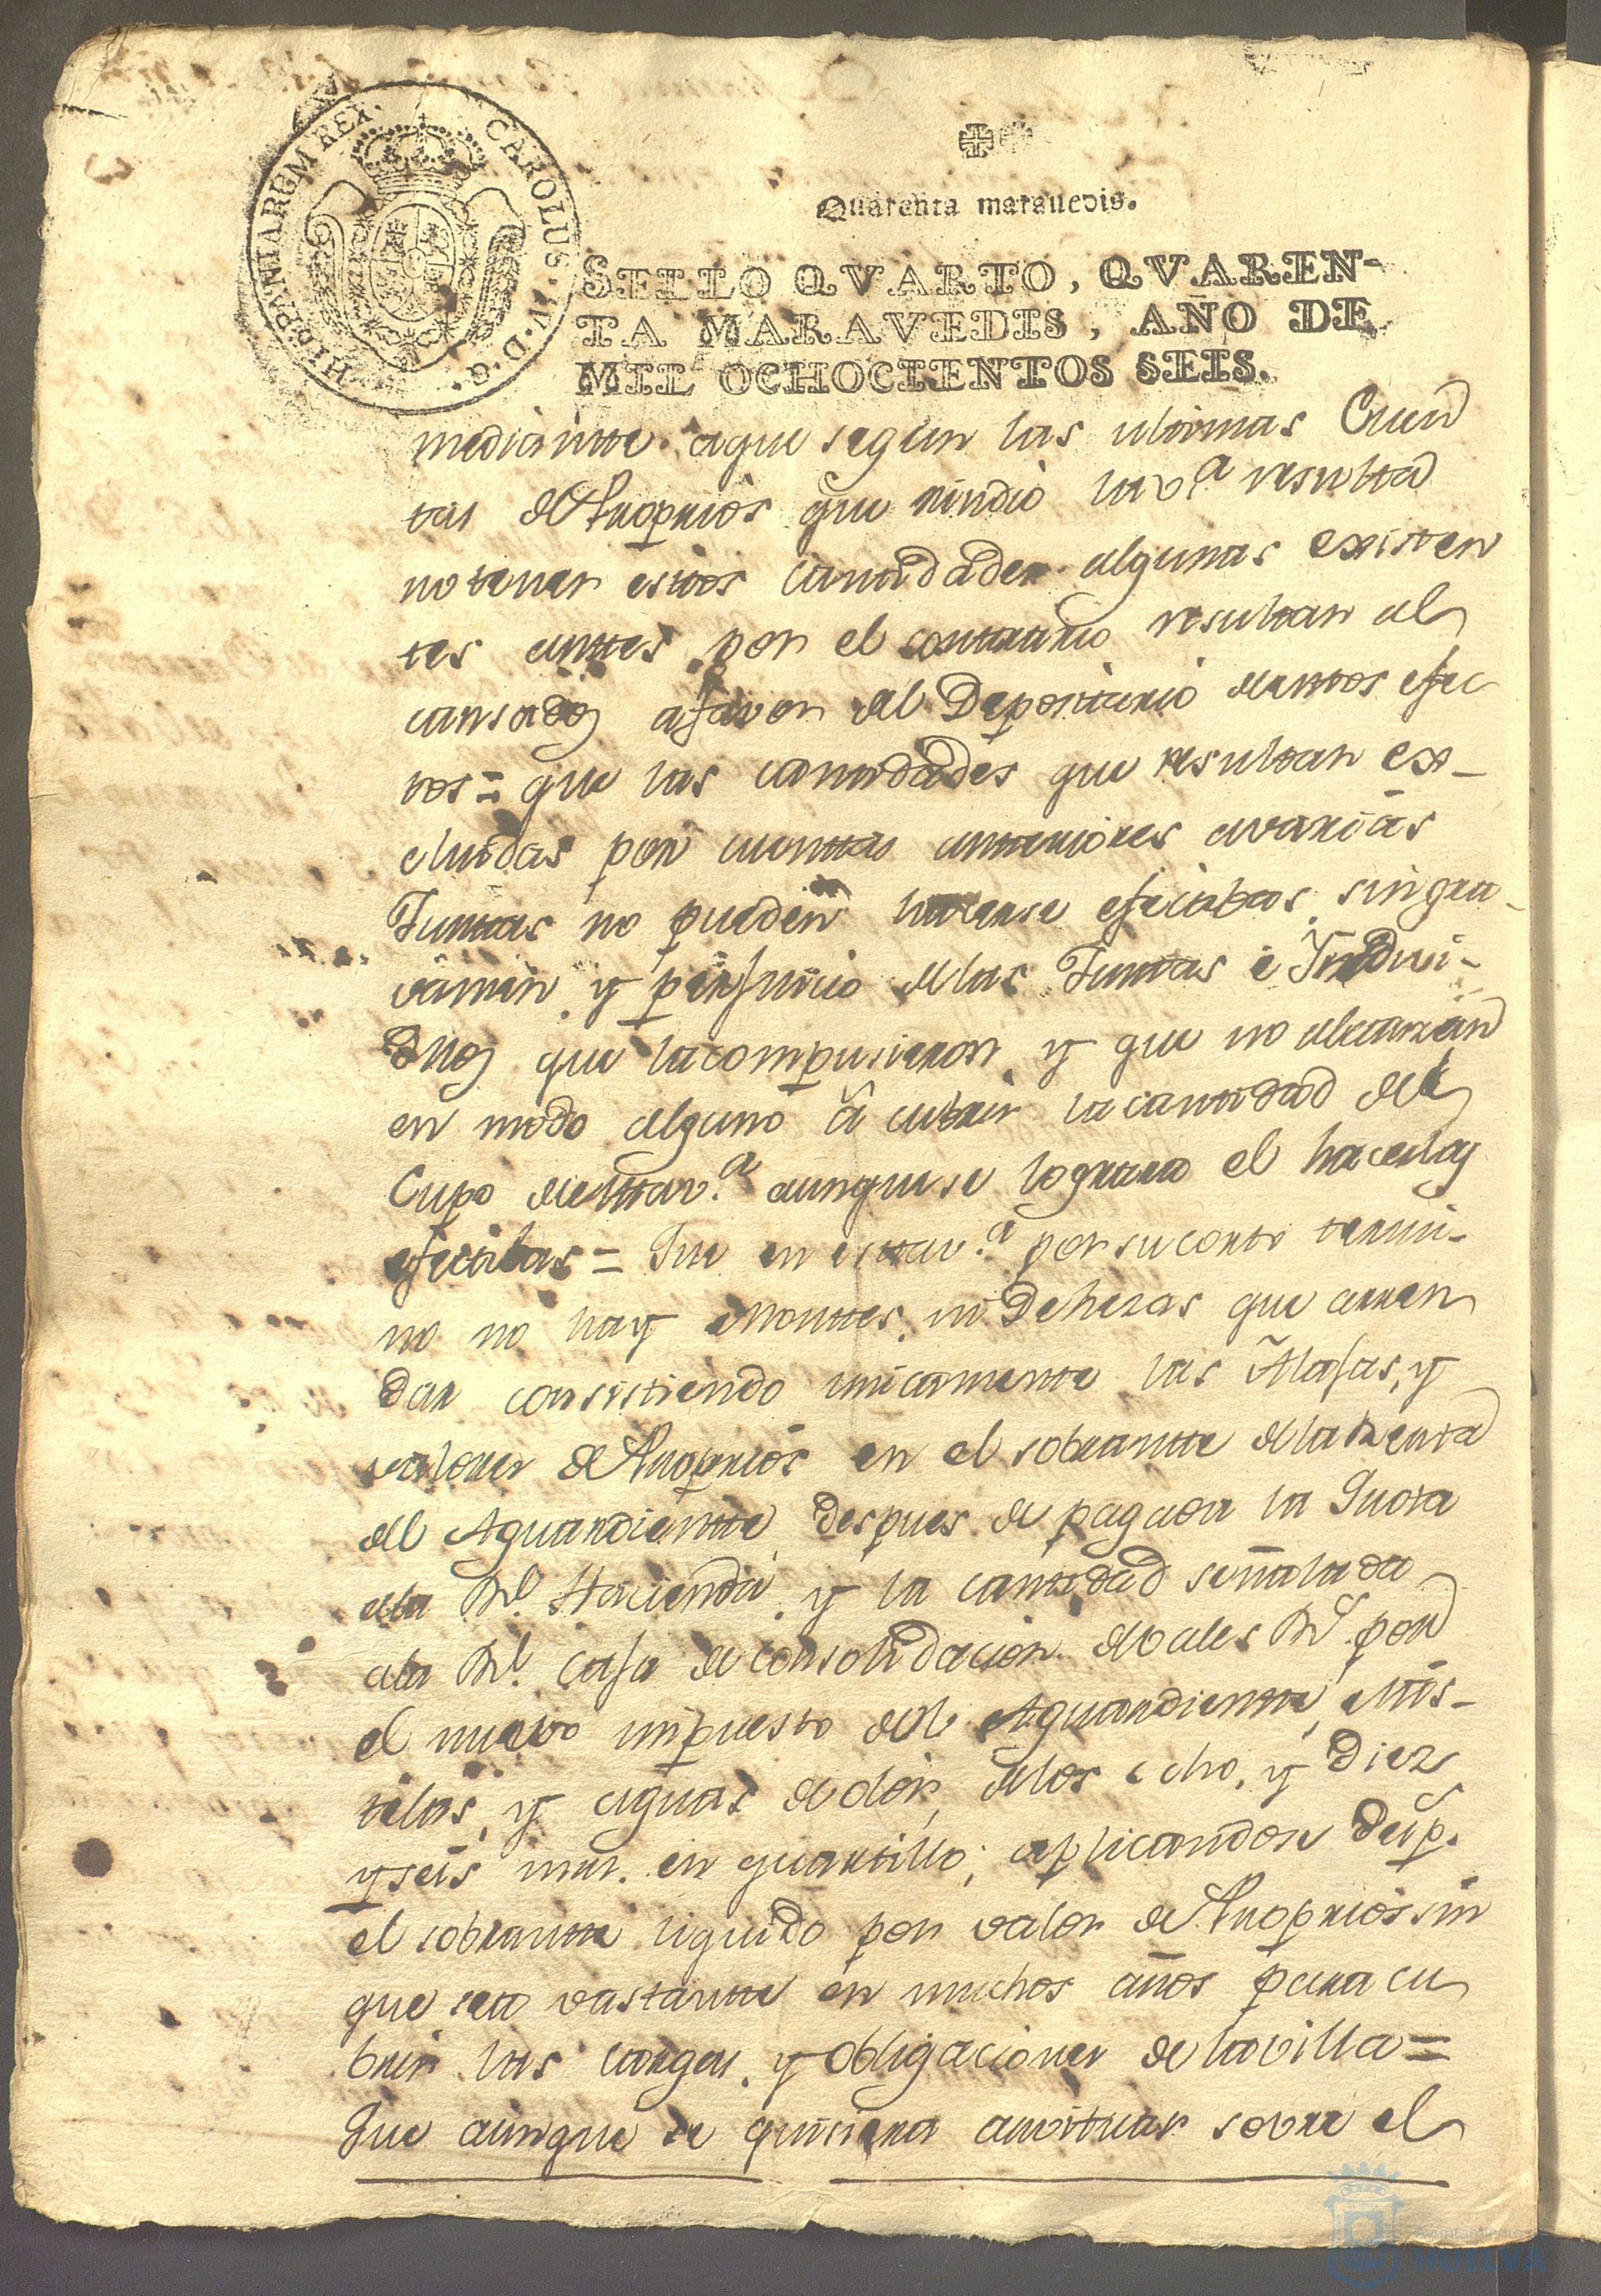 CAROLUS IV. D. G. HISPANIARUM REX
Quarenta maravedis.
SELLO QVARTO, QVAREN-
TA MARAVEDIS, AÑO DE
MIL OCHOCIENTOS SEIS.
mediantte aque segun las ultimas Cuen
tas de Proprios que rindio la v.ª resulta
no tener esttos canttidades algunas existen
tes anttes por el conttrario resultan al
canzados afavor del Depositario de esttos efec
tos = que las canttidades que resultan ex-
cluidas por cuenttas antteriores avarias
Junttas no pueden hacerse efecttibas sin gra-
vamen y perjuicio de las Junttas è Yndivi-
duos que lacompusieron y que no alcanzan
en modo alguno â cubrir la canttidad del
Cupo de estta v.ª aunque se lograra el hacerlas
efectibas = Que en estta v.ª por su corto termi-
no no hay Monttes, ni Dehezas que arren
dar consistiendo unicamente las Alajas, y
valores de Proprios en el sobrantte de la Renta
del Aguardientte despues de pagada la Quota
ala Rl. Hacienda, y la canttidad señalada
ala Rl. Caja de consolidacion de vales Rs. por
el nuevo impuesto del Aguardientte, Mis-
telas, y aguas de olor, de los ocho, y Diez
y seis mrs. en quartillo; aplicandose desp.s
el sobrantte liquido por valor de Proprios sin
que sea vastantte en muchos años para cu
brir las cargas y obligaciones de la villa =
Que aunque se quisiera arvitrar sobre el
Ayuntamiento
HUELVA